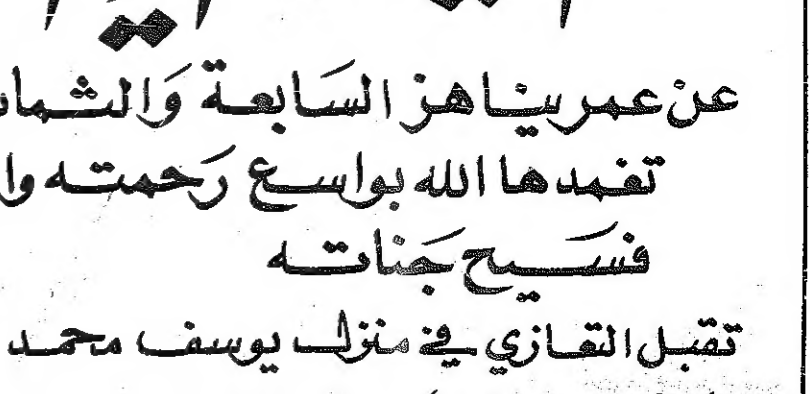 عن عمر يناهز السَابعة وَالثما
تغمدها الله بواسع رَحمته وا
فسَيح جَناته
تقبل التعازي في منزل يوسف محمد